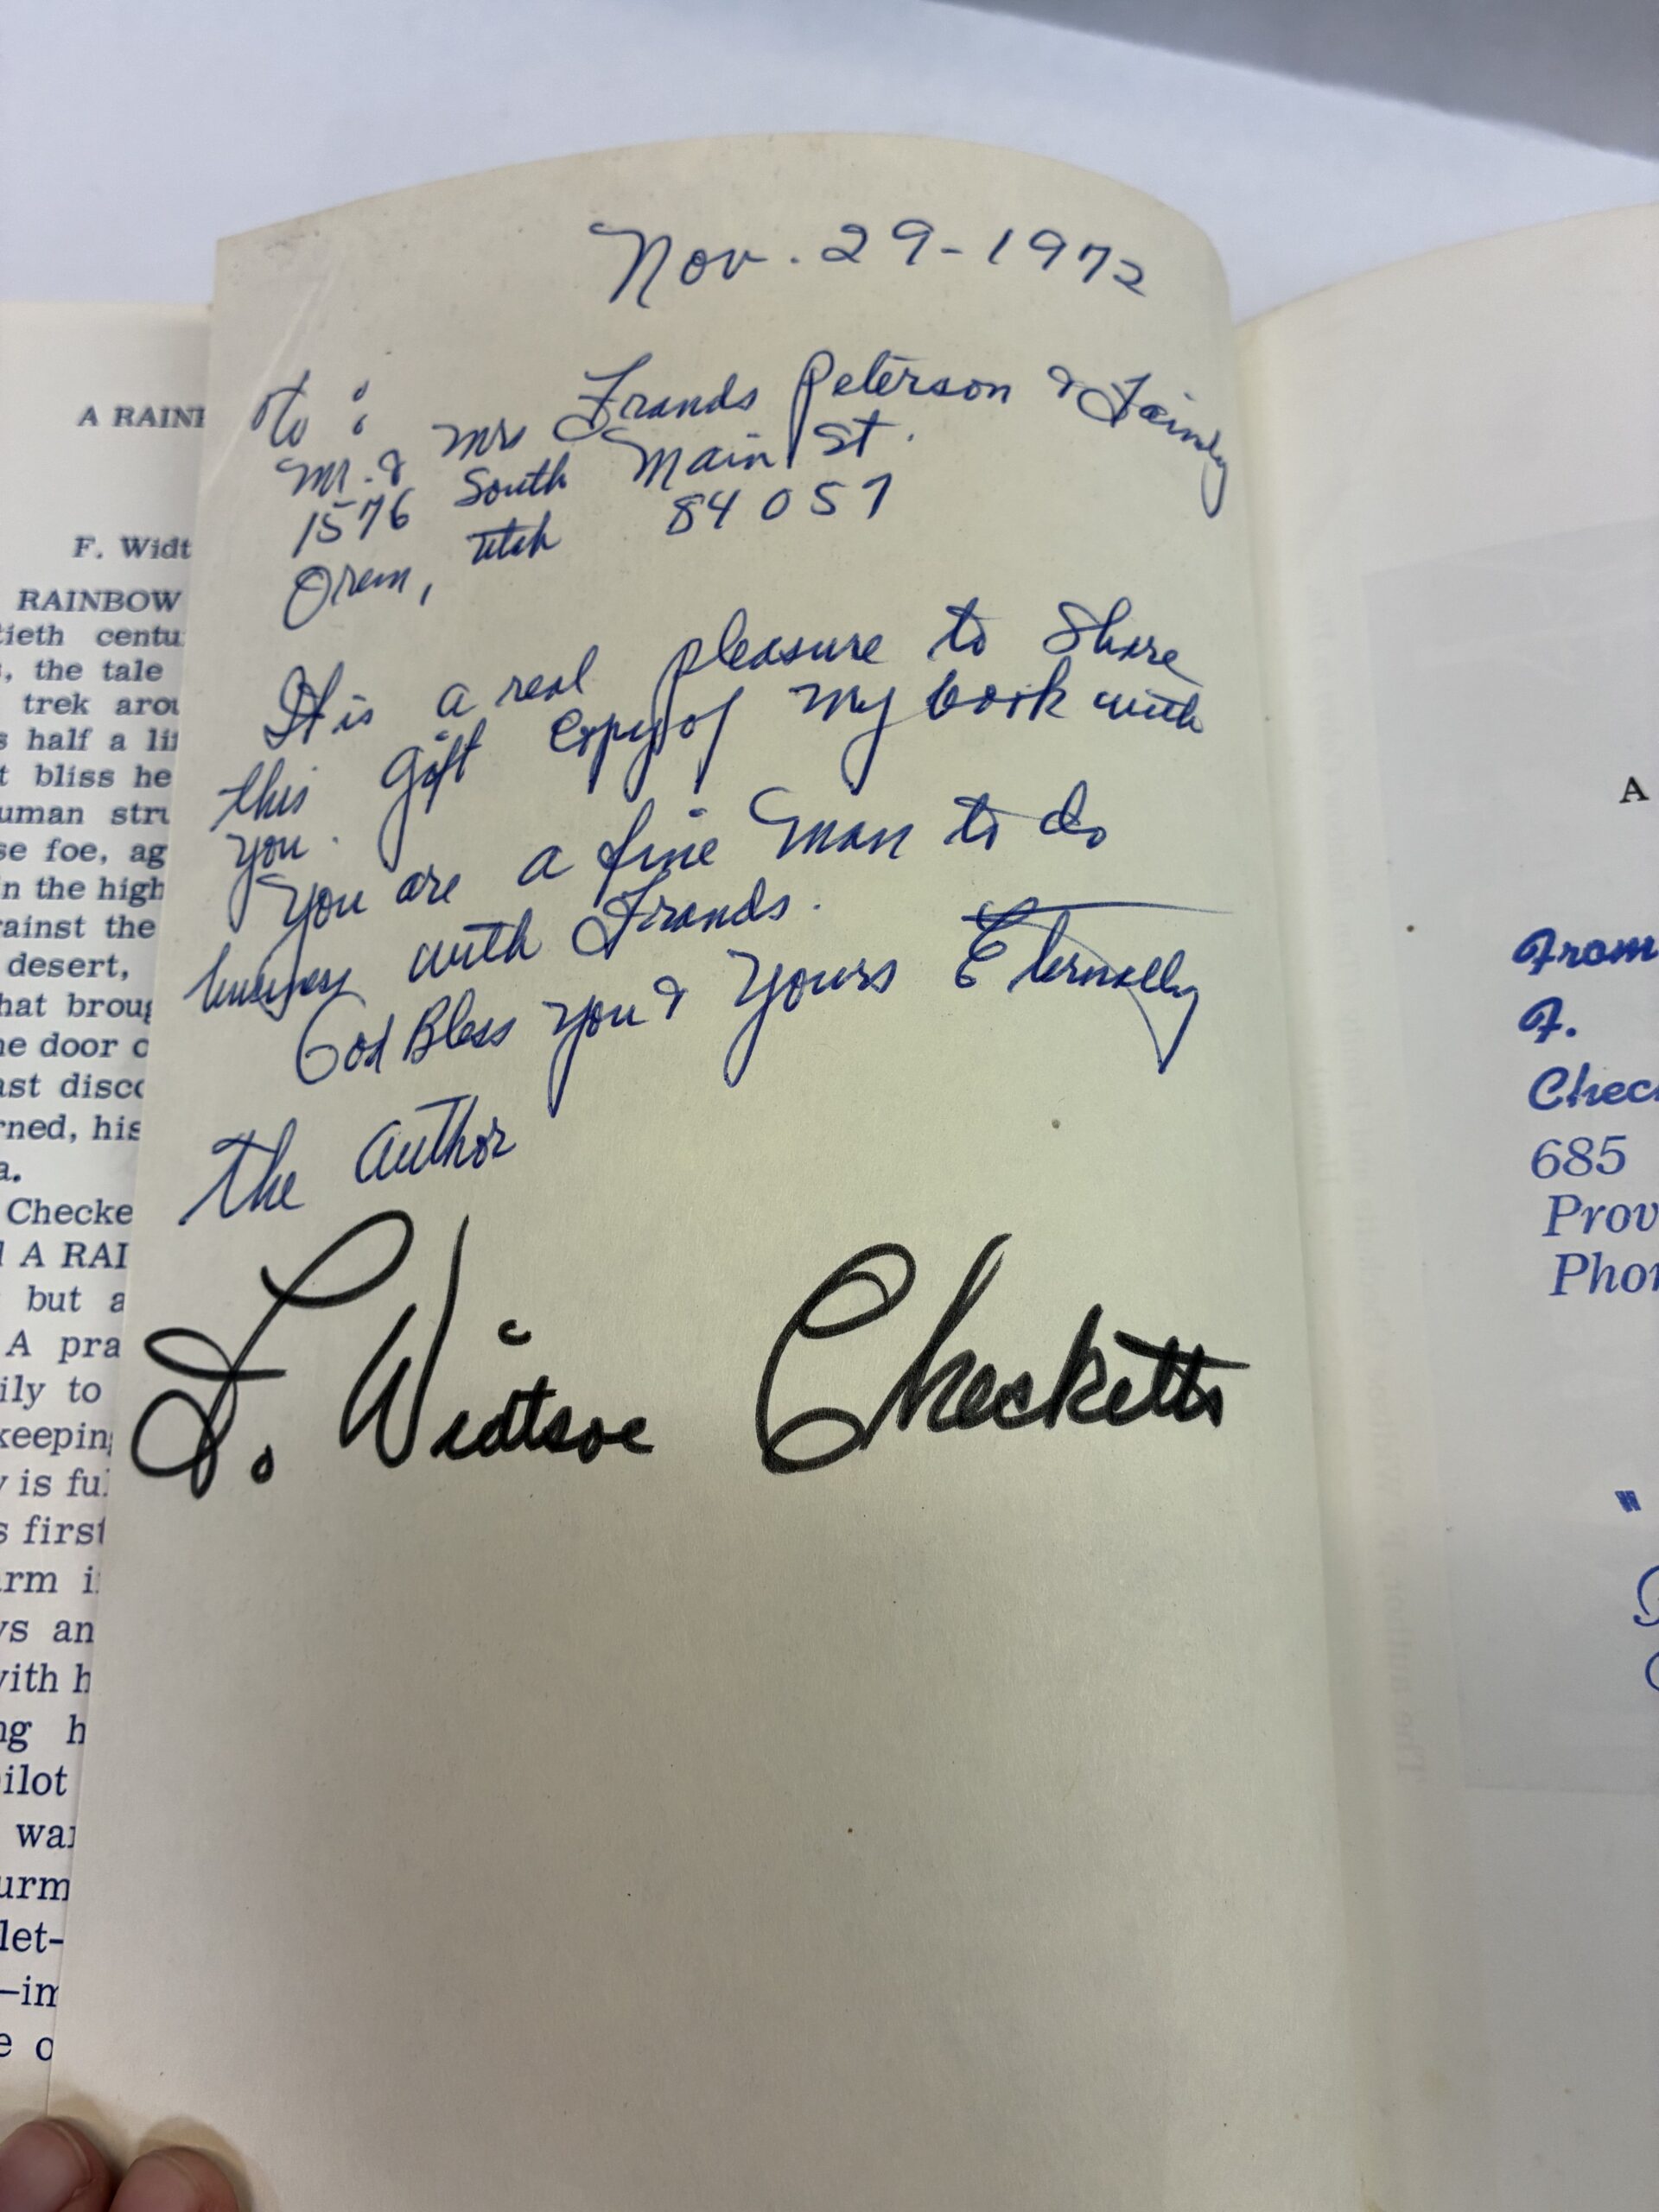 Nov. 29-1972
to:
Mr. & Mrs Frands Peterson & Family
1576 South Main St.
Orem, Utah 84057
It is a real pleasure to Share
this gift copy of my book with
you.
You are a fine man to do
business with Frands.
God Bless you & yours Eternally
the author
F. Widtsoe Checketts
A RAIN
F. Widt
RAINBOW
tieth centu
, the tale
trek arou
s half a li
t bliss he
uman stru
se foe, ag
in the high
rainst the
desert,
hat broug
he door o
ast disco
rned, his
a.
Checke
A RAI
but a
A pra
ily to
keeping
y is ful
s first
arm i
ys an
with h
ng h
pilot
wa
urm
let-
-in
e o
A
From
F.
Check
685
Prov
Phon
"